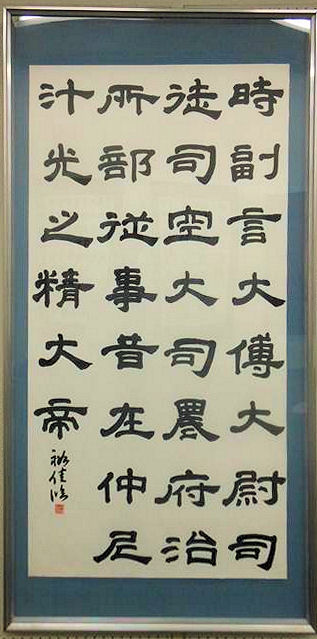 時副言大傅大尉司
徒司空大司農府治
所部從事昔在仲尼
汁光之精大帝